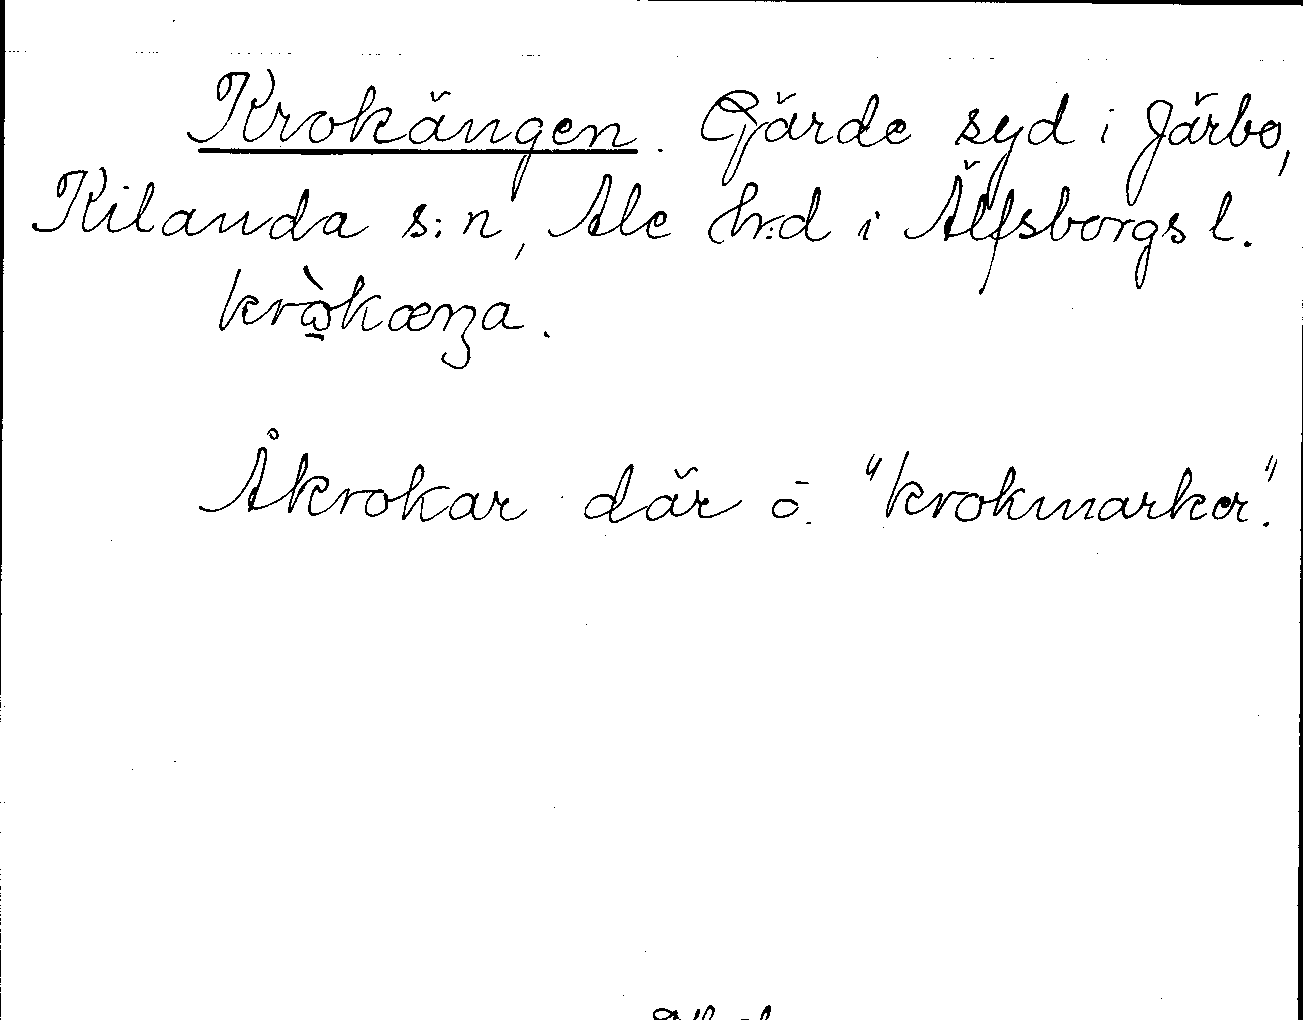 Krokängen. Gärde syd i Järbo,
Kilanda s:n, Ale hrd i Älfsborgs l.
kròkæŋa.
Åkrokar där ō. "krokmarker".